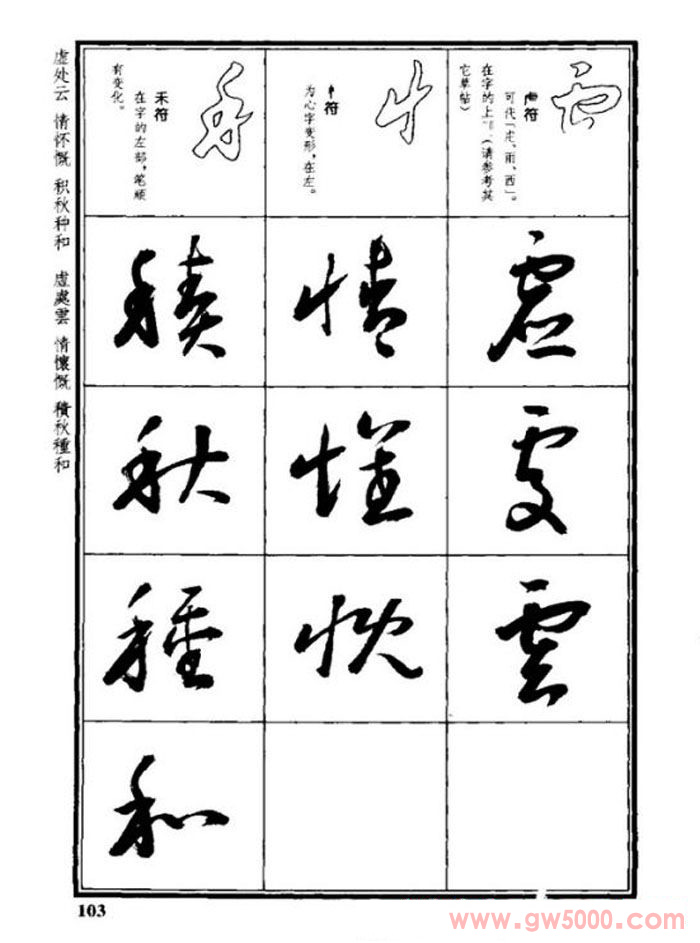 虍符
可代「虍、雨、西」。
在字的上 (请参考其
它草帖)
虛
處
雲
忄符
为心字变形,在左。
情
懷
慨
禾符
在字的左部,笔顺
有变化。
積
秋
種
和
虚处云 情怀慨 积秋种和 虛處雲 情懷慨 積秋種和
103
www.gw5000.com